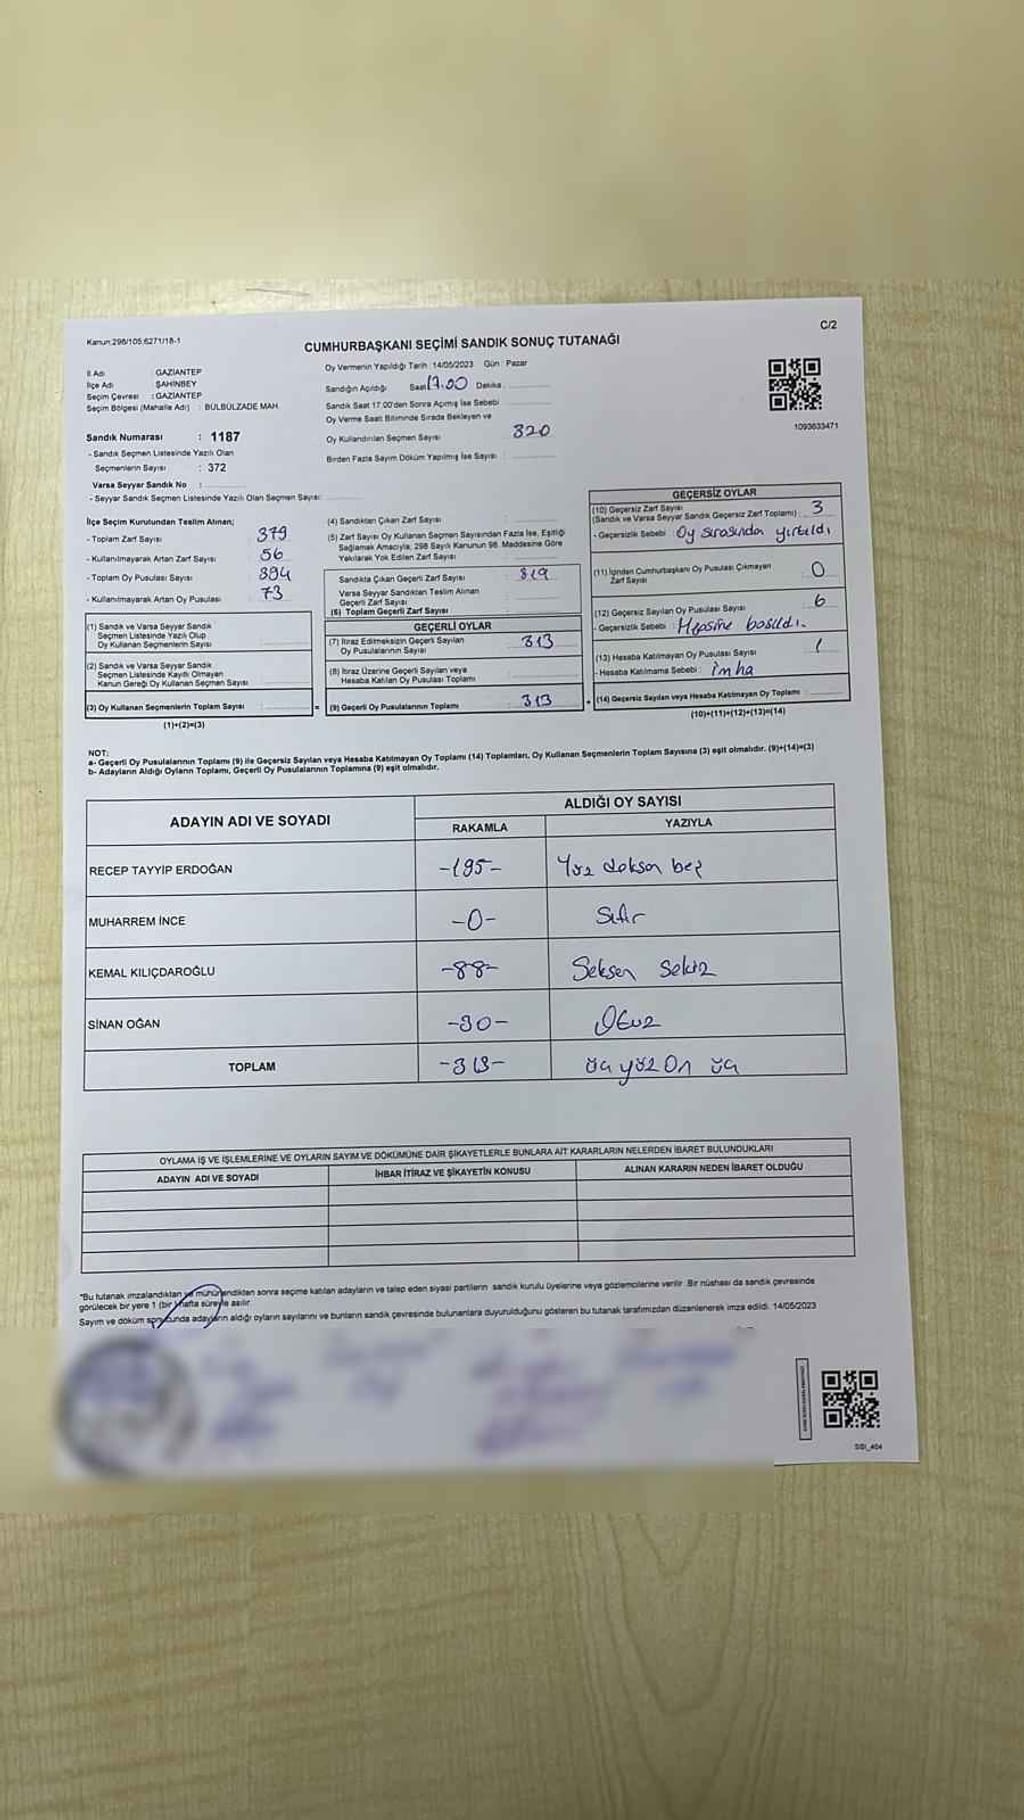 Kanun:298/105,6271/18-1
C/2
CUMHURBAŞKANI SEÇİMİ SANDIK SONUÇ TUTANAĞI
İl Adı GAZİANTEP
İlçe Adı ŞAHİNBEY
Seçim Çevresi : GAZİANTEP
Seçim Bölgesi (Mahalle Adı) : BÜLBÜLZADE MAH.
Sandık Numarası : 1187
- Sandık Seçmen Listesinde Yazılı Olan
Seçmenlerin Sayısı : 372
Varsa Seyyar Sandık No :
- Seyyar Sandık Seçmen Listesinde Yazılı Olan Seçmen Sayısı:
Oy Vermenin Yapıldığı Tarih : 14/05/2023 Gün : Pazar
Sandığın Açıldığı Saat 17.00 Dakika
Sandık Saat 17:00'den Sonra Açımış İse Sebebi
Oy Verme Saati Bitiminde Sırada Bekleyen ve
Oy Kullandırılan Seçmen Sayısı 320
Birden Fazla Sayım Döküm Yapılmış İse Sayısı :
1093633471
İlçe Seçim Kurulundan Teslim Alınan;
- Toplam Zarf Sayısı 379
- Kullanılmayarak Artan Zarf Sayısı 56
- Toplam Oy Pusulası Sayısı 394
- Kullanılmayarak Artan Oy Pusulası 73
(1) Sandık ve Varsa Seyyar Sandık
Seçmen Listesinde Yazılı Olup
Oy Kullanan Seçmenlerin Sayısı
(2) Sandık ve Varsa Seyyar Sandık
Seçmen Listesinde Kayıtlı Olmayan
Kanun Gereği Oy Kullanan Seçmen Sayısı
(3) Oy Kullanan Seçmenlerin Toplam Sayısı =
(1)+(2)=(3)
(4) Sandıktan Çıkan Zarf Sayısı
(5) Zarf Sayısı Oy Kullanan Seçmen Sayısından Fazla İse, Eşitliği
Sağlamak Amacıyla, 298 Sayılı Kanunun 98. Maddesine Göre
Yakılarak Yok Edilen Zarf Sayısı
Sandıkta Çıkan Geçerli Zarf Sayısı 319
Varsa Seyyar Sandıktan Teslim Alınan
Geçerli Zarf Sayısı
(6) Toplam Geçerli Zarf Sayısı
GEÇERLİ OYLAR
(7) İtiraz Edilmeksizin Geçerli Sayılan
Oy Pusulalarının Sayısı 313
(8) İtiraz Üzerine Geçerli Sayılan veya
Hesaba Katılan Oy Pusulası Toplamı
(9) Geçerli Oy Pusulalarının Toplamı 313 +
GEÇERSİZ OYLAR
(10) Geçersiz Zarf Sayısı
(Sandık ve Varsa Seyyar Sandık Geçersiz Zarf Toplamı) 3
- Geçersizlik Sebebi Oy sırasında yırtıldı
(11) İçinden Cumhurbaşkanı Oy Pusulası Çıkmayan
Zarf Sayısı 0
(12) Geçersiz Sayılan Oy Pusulası Sayısı 6
- Geçersizlik Sebebi : Hepsine basıldı.
(13) Hesaba Katılmayan Oy Pusulası Sayısı 1
- Hesaba Katılmama Sebebi : imha
(14) Geçersiz Sayılan veya Hesaba Katılmayan Oy Toplamı
(10)+(11)+(12)+(13)=(14)
NOT:
a- Geçerli Oy Pusulalarının Toplamı (9) ile Geçersiz Sayılan veya Hesaba Katılmayan Oy Toplamı (14) Toplamları, Oy Kullanan Seçmenlerin Toplam Sayısına (3) eşit olmalıdır. (9)+(14)=(3)
b- Adayların Aldığı Oyların Toplamı, Geçerli Oy Pusulalarının Toplamına (9) eşit olmalıdır.
ADAYIN ADI VE SOYADI ALDIĞI OY SAYISI
RAKAMLA YAZIYLA
RECEP TAYYİP ERDOĞAN -195- Yüz doksan beş
MUHARREM İNCE -0- Sıfır
KEMAL KILIÇDAROĞLU -88- Seksen sekiz
SİNAN OĞAN -30- Otuz
TOPLAM -313- üç yüz On üç
OYLAMA İŞ VE İŞLEMLERİNE VE OYLARIN SAYIM VE DÖKÜMÜNE DAİR ŞİKAYETLERLE BUNLARA AİT KARARLARIN NELERDEN İBARET BULUNDUKLARI
ADAYIN ADI VE SOYADI İHBAR İTİRAZ VE ŞİKAYETİN KONUSU ALINAN KARARIN NEDEN İBARET OLDUĞU
*Bu tutanak imzalandıktan ve mühürlendikten sonra seçime katılan adayların ve talep eden siyasi partilerin sandık kurulu üyelerine veya gözlemcilerine verilir. Bir nüshası da sandık çevresinde
görülecek bir yere 1 (bir) hafta süreyle asılır.
Sayım ve döküm sonucunda adayların aldığı oyların sayılarını ve bunların sandık çevresinde bulunanlara duyurulduğunu gösteren bu tutanak tarafımızdan düzenlenerek imza edildi. 14/05/2023
SSI_404